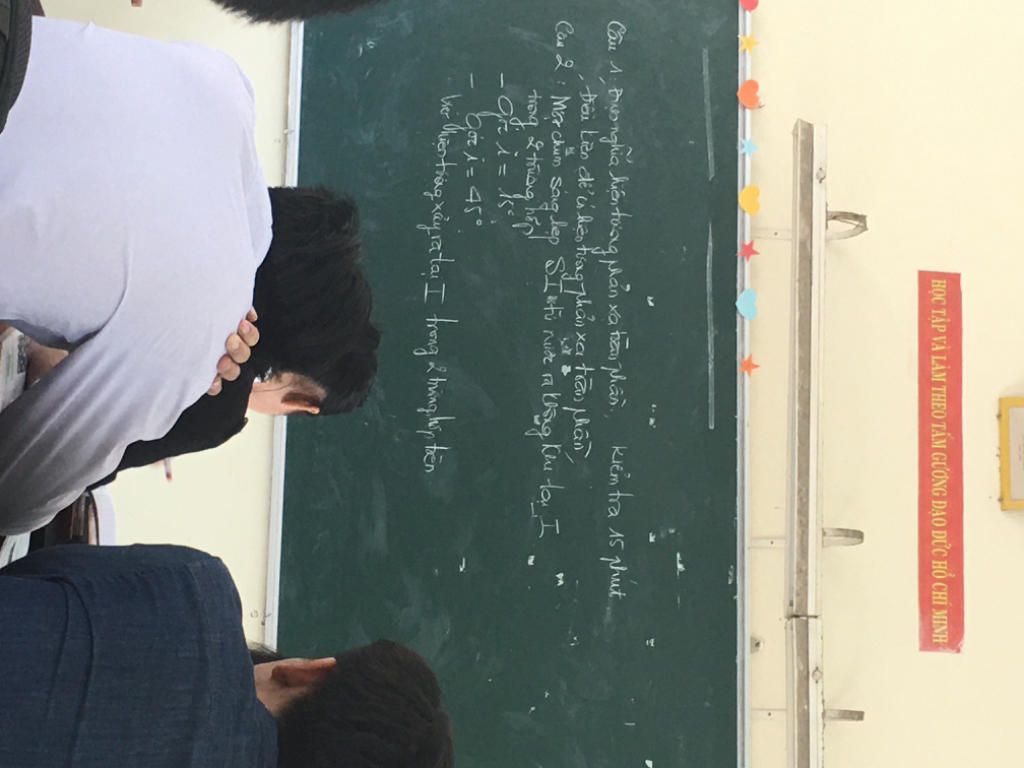 HỌC TẬP VÀ LÀM THEO TẤM GƯƠNG ĐẠO ĐỨC HỒ CHÍ MINH
Kiểm tra 15 phút
Câu 1, Định nghĩa hiện tượng phản xạ toàn phần,
Điều kiện để có hiện tượng phản xạ toàn phần
Câu 2 : Một chùm sáng hẹp SI từ nước ra không khí tại I
trong 2 trường hợp
- Góc i = 15°
- Góc i = 45°
hiện tượng xảy ra tại I trong 2 trường hợp trên